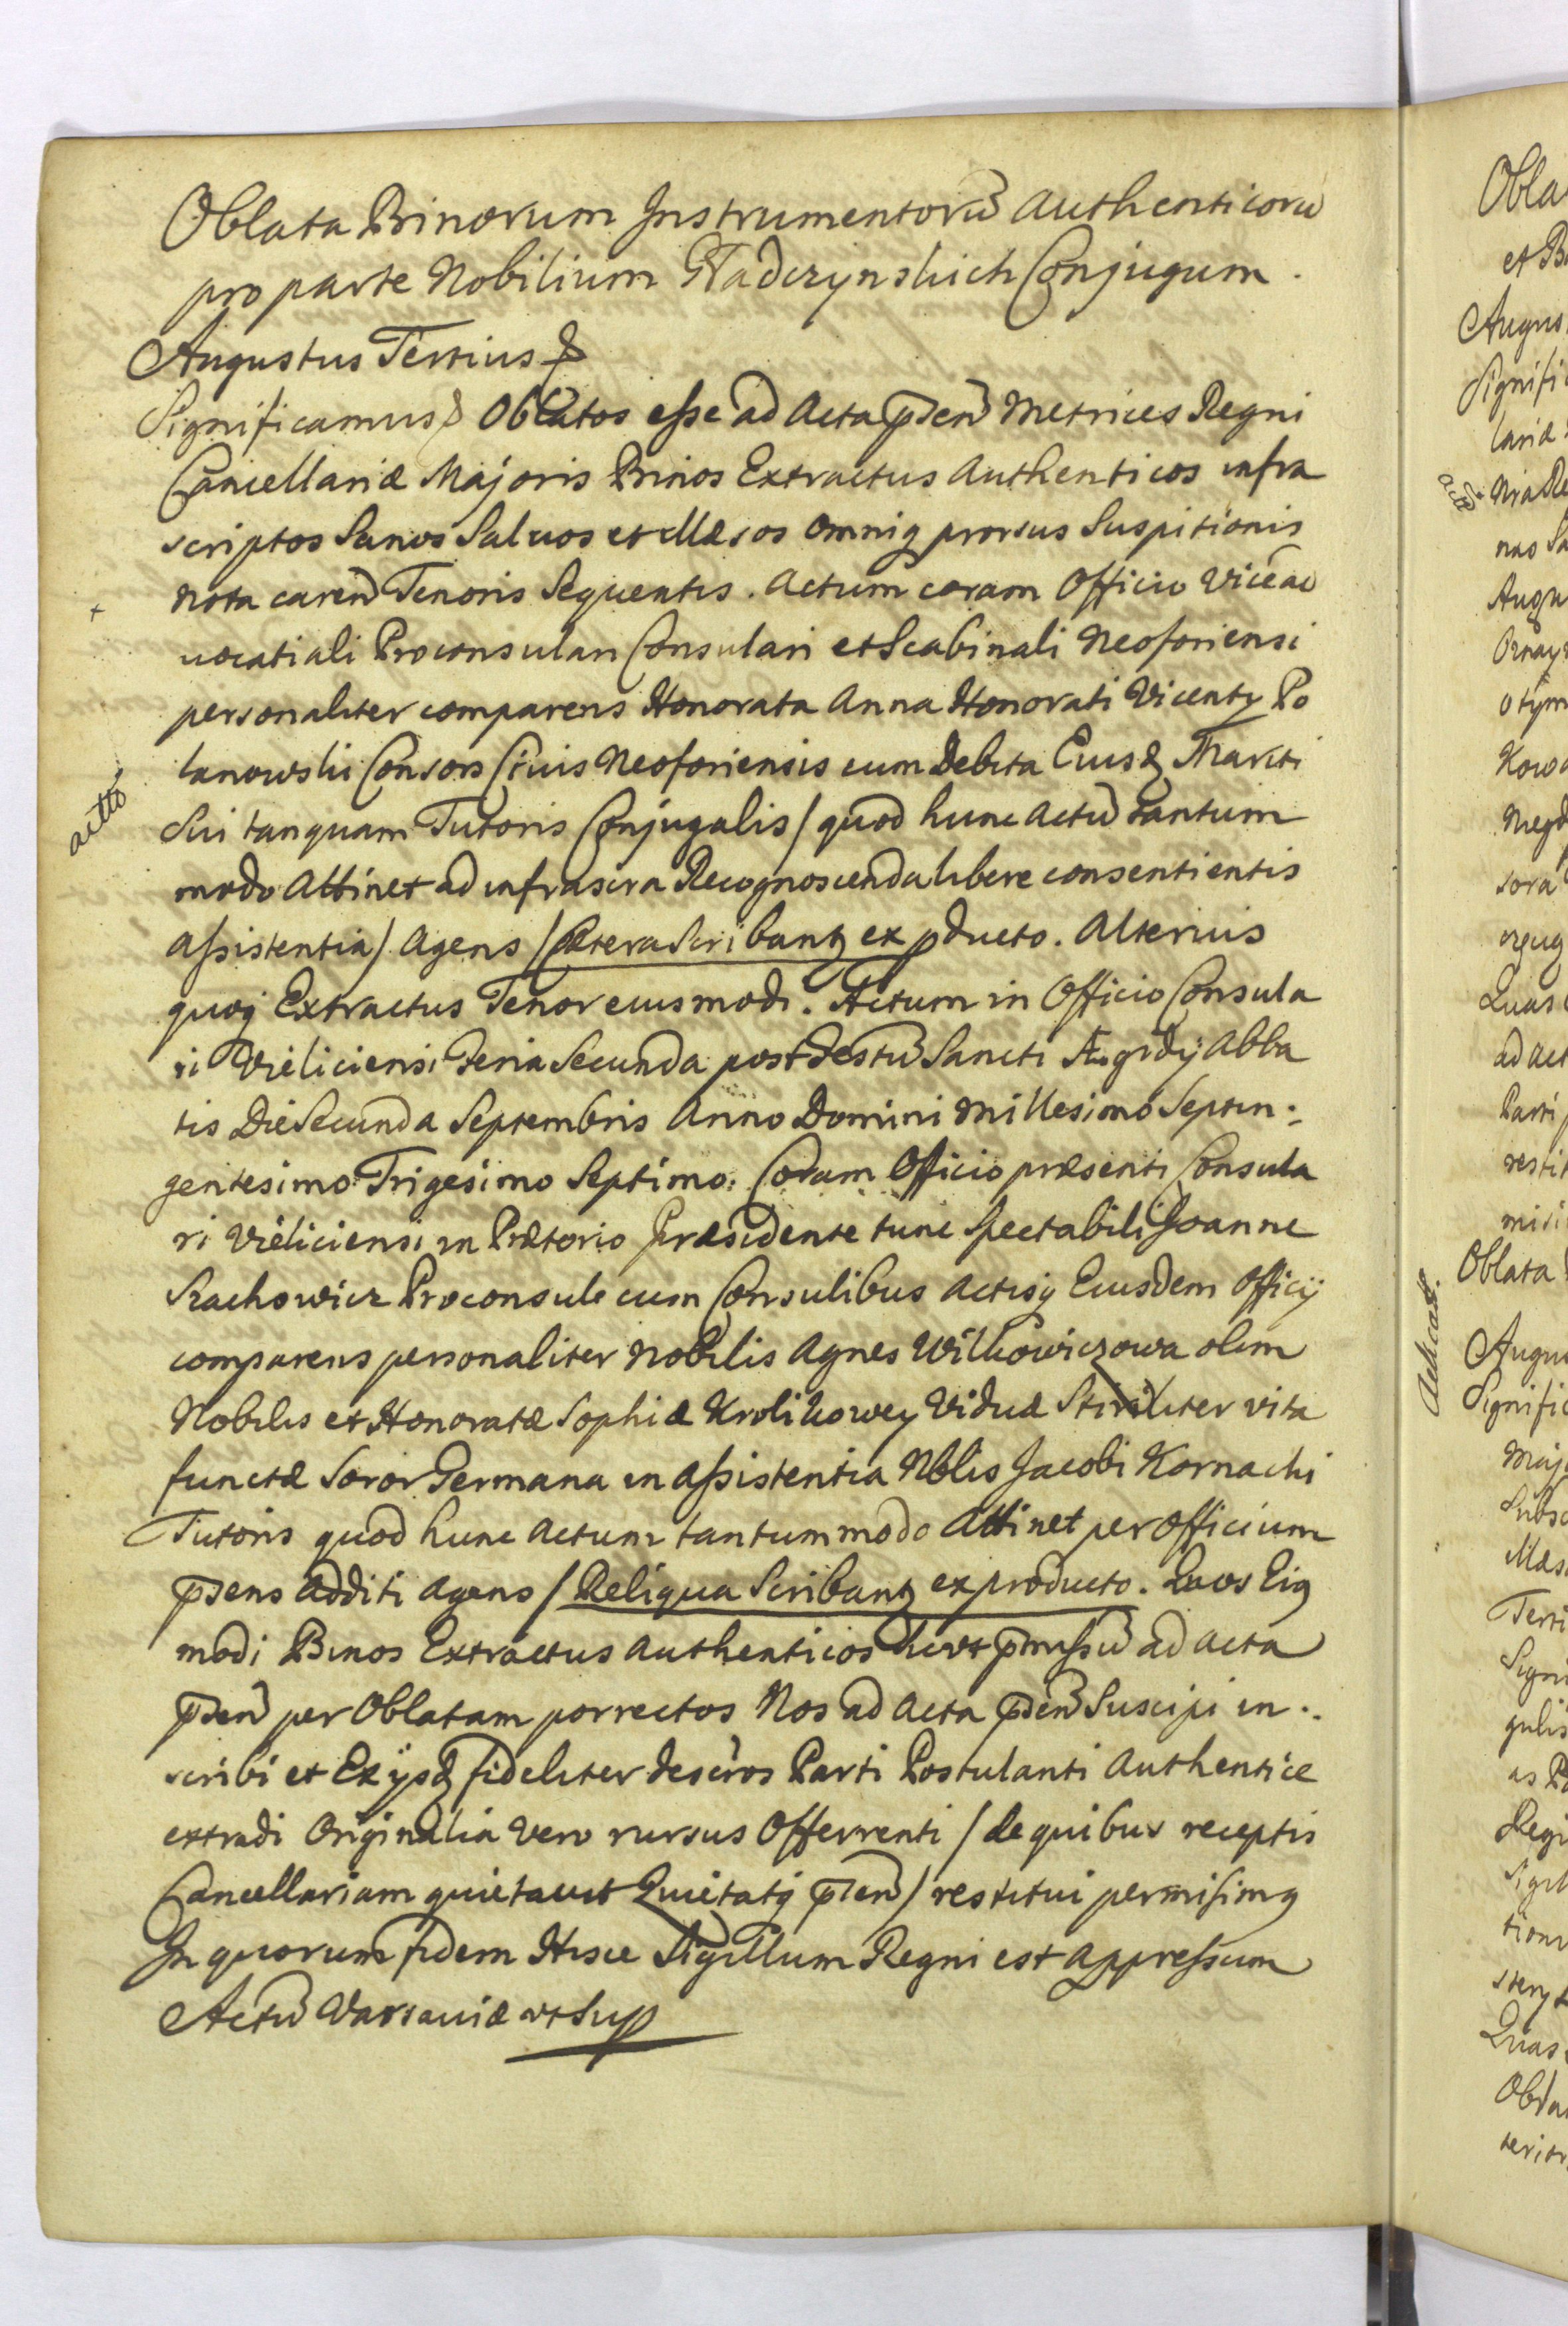 Oblata Binorum Instrumentorū Authenticorū
pro parte Nobilium Gładczynskich Conjugum.
Augustus Tertius &
Significamus & Oblatos esse ad Acta p̄sen̄ Metrices Regni
Cancellariæ Majoris Binos Extractus Authenticos infra
scriptos Sanos Salvos et illæsos omniq prorsus Suspitionis
nota caren̄ Tenoris Sequentis. Actum coram Officio Vicead
uocatiali Proconsulari Consulari et Scabinali Neoforiensi
personaliter comparens Honorata Anna Honorati Vicenty Po
lanowski Consors Ciuis Neoforiensis cum Debita Eiusd Mariti
Sui tanquam Tutoris Conjugalis / quod hunc Actū tantum
modo Attinet ad infrascra Recognoscenda libere consentientis
Assistentia / Agens / Cætera Scribantz ex pducto. Alterius
quoq Extractus Tenor eiusmodi. Actum in Officio Consula
ri Vieliciensi Feria Secunda post Festū Sancti Ægidÿ Abba
tis Die Secunda Septembris Anno Domini Millesimo Septin:
gentesimo Trigesimo Septimo: Coram Officio præsenti Consula
ri Vieliciensi in Prætorio Præsidente tunc Spectabili Joanne
Stachowicz Proconsule cum Consulibus Actisq Eiusdem Officÿ
comparens personaliter Nobilis Agnes Wilkowiczowa olim
Nobilis et Honoratæ Sophiæ Krolikowey Viduæ Steriliter vita
functæ Soror Germana in Assistentia Nblis Jacobi Kornacki
Tutoris quod hunc Actum tantummodo Attinet per Officium
p̄sens Additi Agens / Reliqua Scribantz ex producto. Quos Eiq
modi Binos Extractus Authenticos uti p̄missū ad Acta
p̄sen̄ per Oblatam porrectos Nos ad Acta p̄sen̄ Suscipi in:
scribi et Ex ÿsd fideliter descros Parti Postulanti Authentice
extradi Originalia Vero rursus Offerrenti / de quibus receptis
Cancellariam quietauit Quietatq p̄sen̄ / restitui permisimq
In quorum fidem Hisce Sigillum Regni est appressum
Actū Varsauiæ ut Sup
actto
+